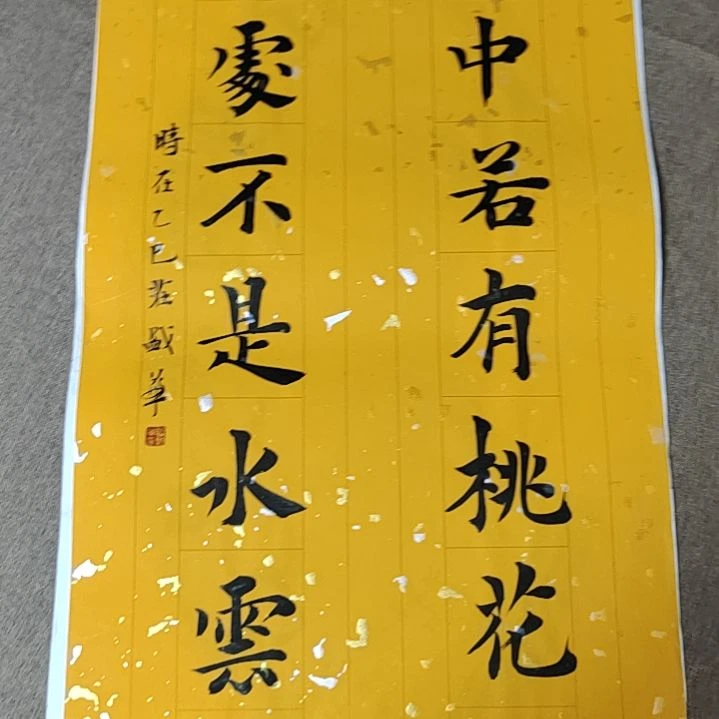 中若有桃花
處不是水雲
時在乙巳莊盛華